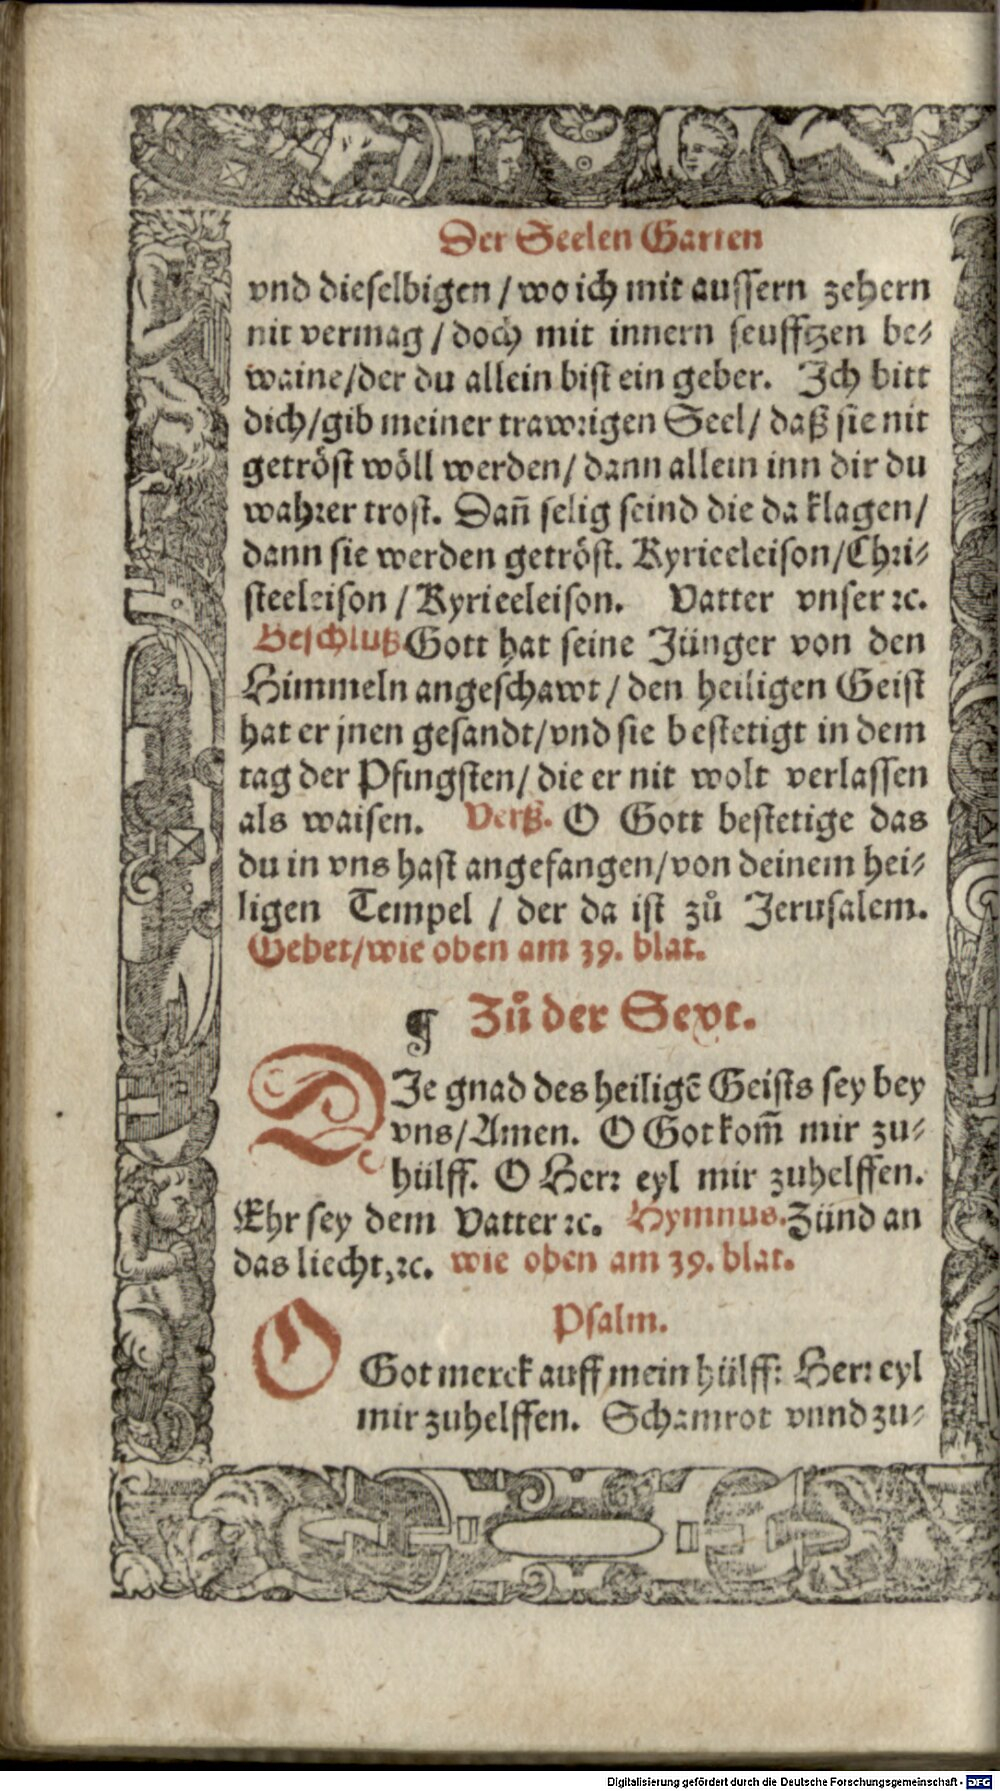 Der Seelen Garten
vnd dieselbigen / wo ich mit aussern zehern
nit vermag / doch mit innern seufftzen be⸗
waine/der du allein bist ein geber. Ich bitt
dich/gib meiner trawrigen Seel/ daß sie nit
getröst wöll werden/ dann allein inn dir du
wahrer trost. Dañ selig seind die da klagen/
dann sie werden getröst. Kyrieeleison/Chri⸗
steeleison / Kyrieeleison. Vatter vnser ꝛc.
Beschluß Gott hat seine Jünger von den
Himmeln angeschawt / den heiligen Geist
hat er jnen gesandt/vnd sie bestetigt in dem
tag der Pfingsten/ die er nit wolt verlassen
als waisen. Verß. O Gott bestetige das
du in vns hast angefangen/von deinem hei⸗
ligen Tempel / der da ist zů Jerusalem.
Gebet/wie oben am 39. blat.
¶ Zů der Sext.
DIe gnad des heiligẽ Geists sey bey
vns/Amen. O Got kom̃ mir zu⸗
hülff. O Herr eyl mir zuhelffen.
Ehr sey dem Vatter ꝛc. Hymnus. Zünd an
das liecht,ꝛc. wie oben am 39. blat.
Psalm.
O Got merck auff mein hülff: Herr eyl
mir zuhelffen. Schamrot vnnd zu⸗
Digitalisierung gefördert durch die Deutsche Forschungsgemeinschaft - DFG